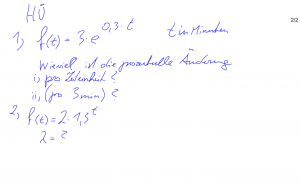 HÜ
1) f(t) = 3 · e^0,3·t   t in Minuten
Wieviel ist die prozentuelle Änderung
i) pro Zeiteinheit ?
ii) (pro 3min) ?
2) f(t) = 2 · 1,3^t
λ = ?